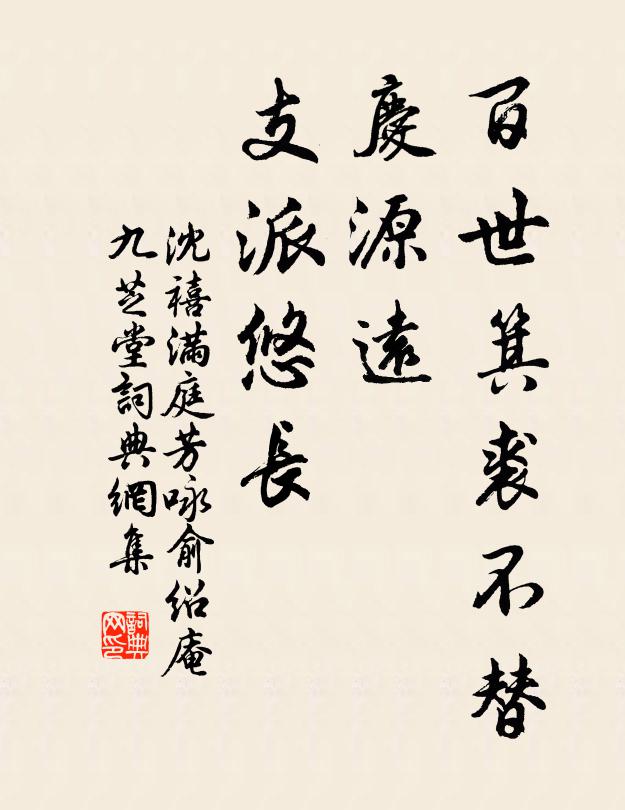 百世箕裘不替
慶源遠
支派悠長
沈禧滿庭芳咏俞紹庵
九芝堂詞典網集
詞典網印